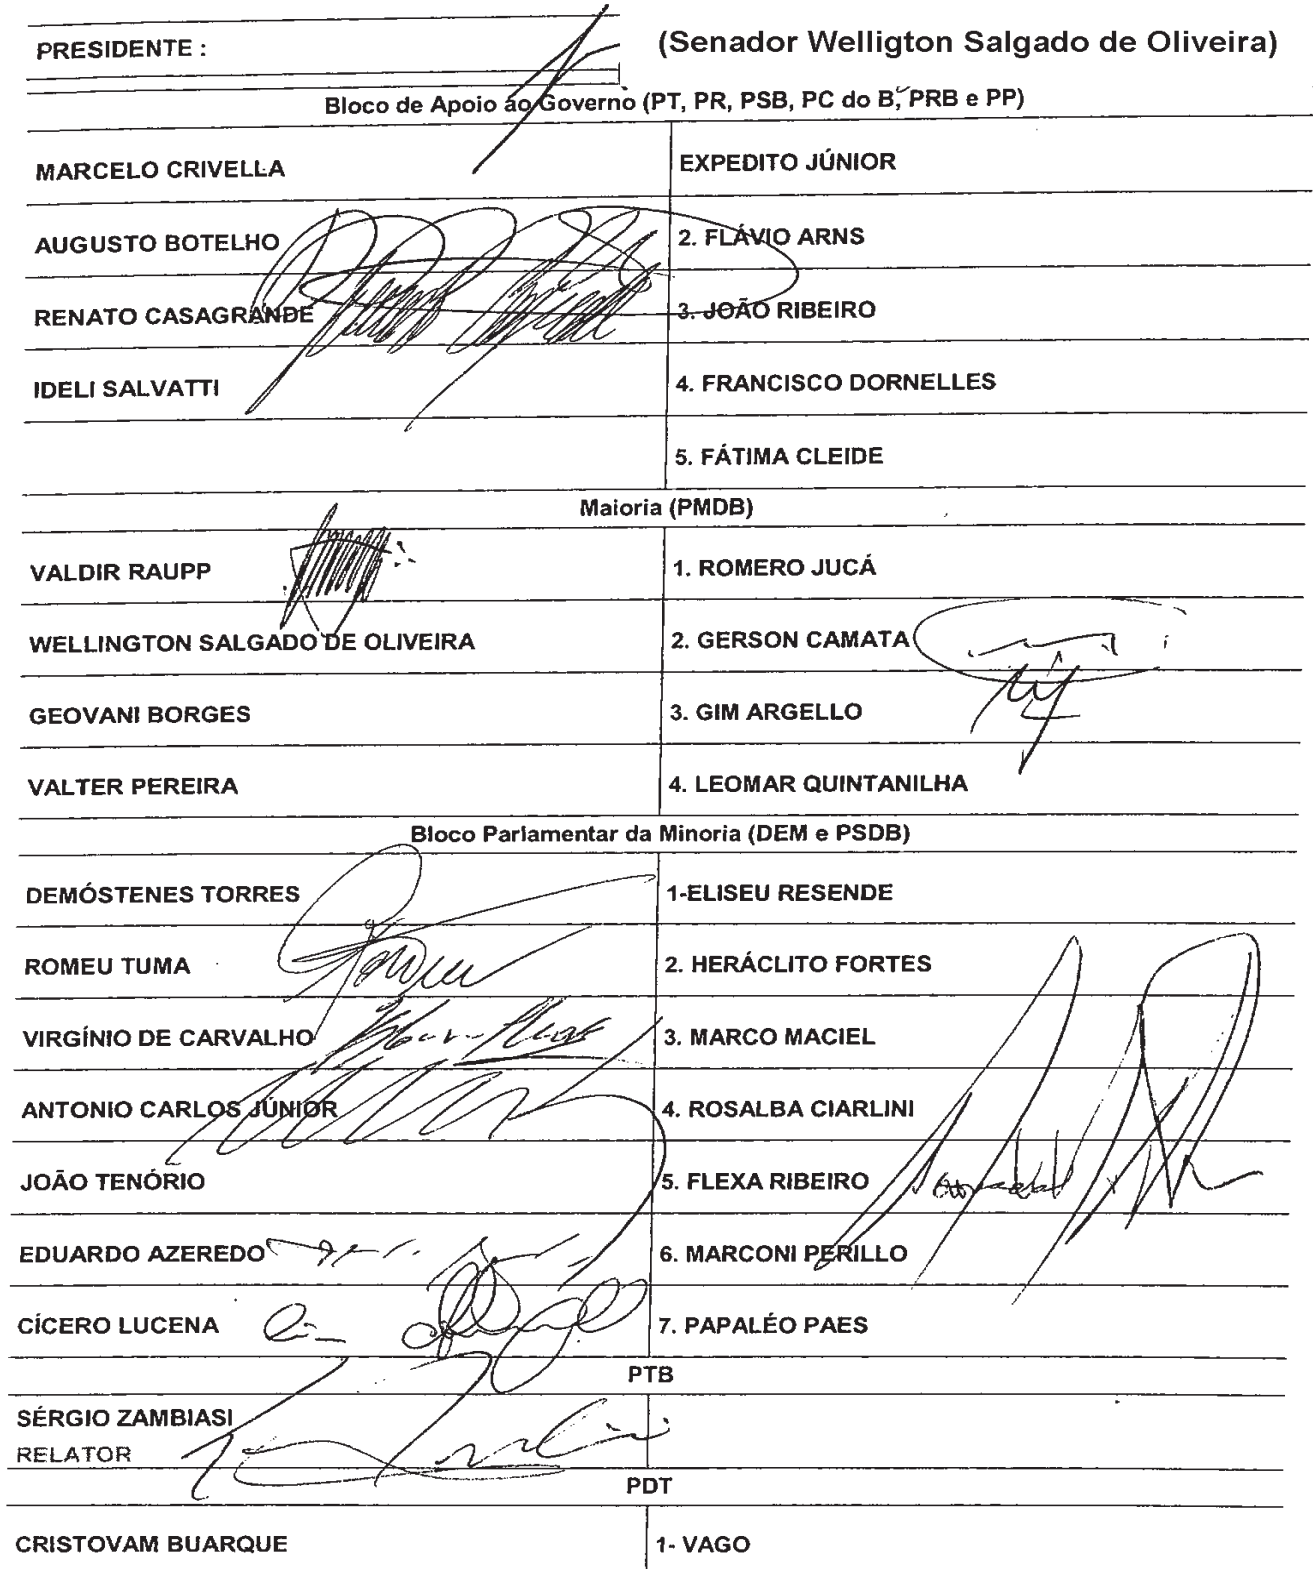 PRESIDENTE :
(Senador Welligton Salgado de Oliveira)
Bloco de Apoio ao Governo (PT, PR, PSB, PC do B, PRB e PP)
MARCELO CRIVELLA
EXPEDITO JÚNIOR
AUGUSTO BOTELHO
2. FLÁVIO ARNS
RENATO CASAGRANDE
3. JOÃO RIBEIRO
IDELI SALVATTI
4. FRANCISCO DORNELLES
5. FÁTIMA CLEIDE
Maioria (PMDB)
VALDIR RAUPP
1. ROMERO JUCÁ
WELLINGTON SALGADO DE OLIVEIRA
2. GERSON CAMATA
GEOVANI BORGES
3. GIM ARGELLO
VALTER PEREIRA
4. LEOMAR QUINTANILHA
Bloco Parlamentar da Minoria (DEM e PSDB)
DEMÓSTENES TORRES
1-ELISEU RESENDE
ROMEU TUMA
2. HERÁCLITO FORTES
VIRGÍNIO DE CARVALHO
3. MARCO MACIEL
ANTONIO CARLOS JÚNIOR
4. ROSALBA CIARLINI
JOÃO TENÓRIO
5. FLEXA RIBEIRO
EDUARDO AZEREDO
6. MARCONI PERILLO
CÍCERO LUCENA
7. PAPALÉO PAES
PTB
SÉRGIO ZAMBIASI
RELATOR
PDT
CRISTOVAM BUARQUE
1- VAGO